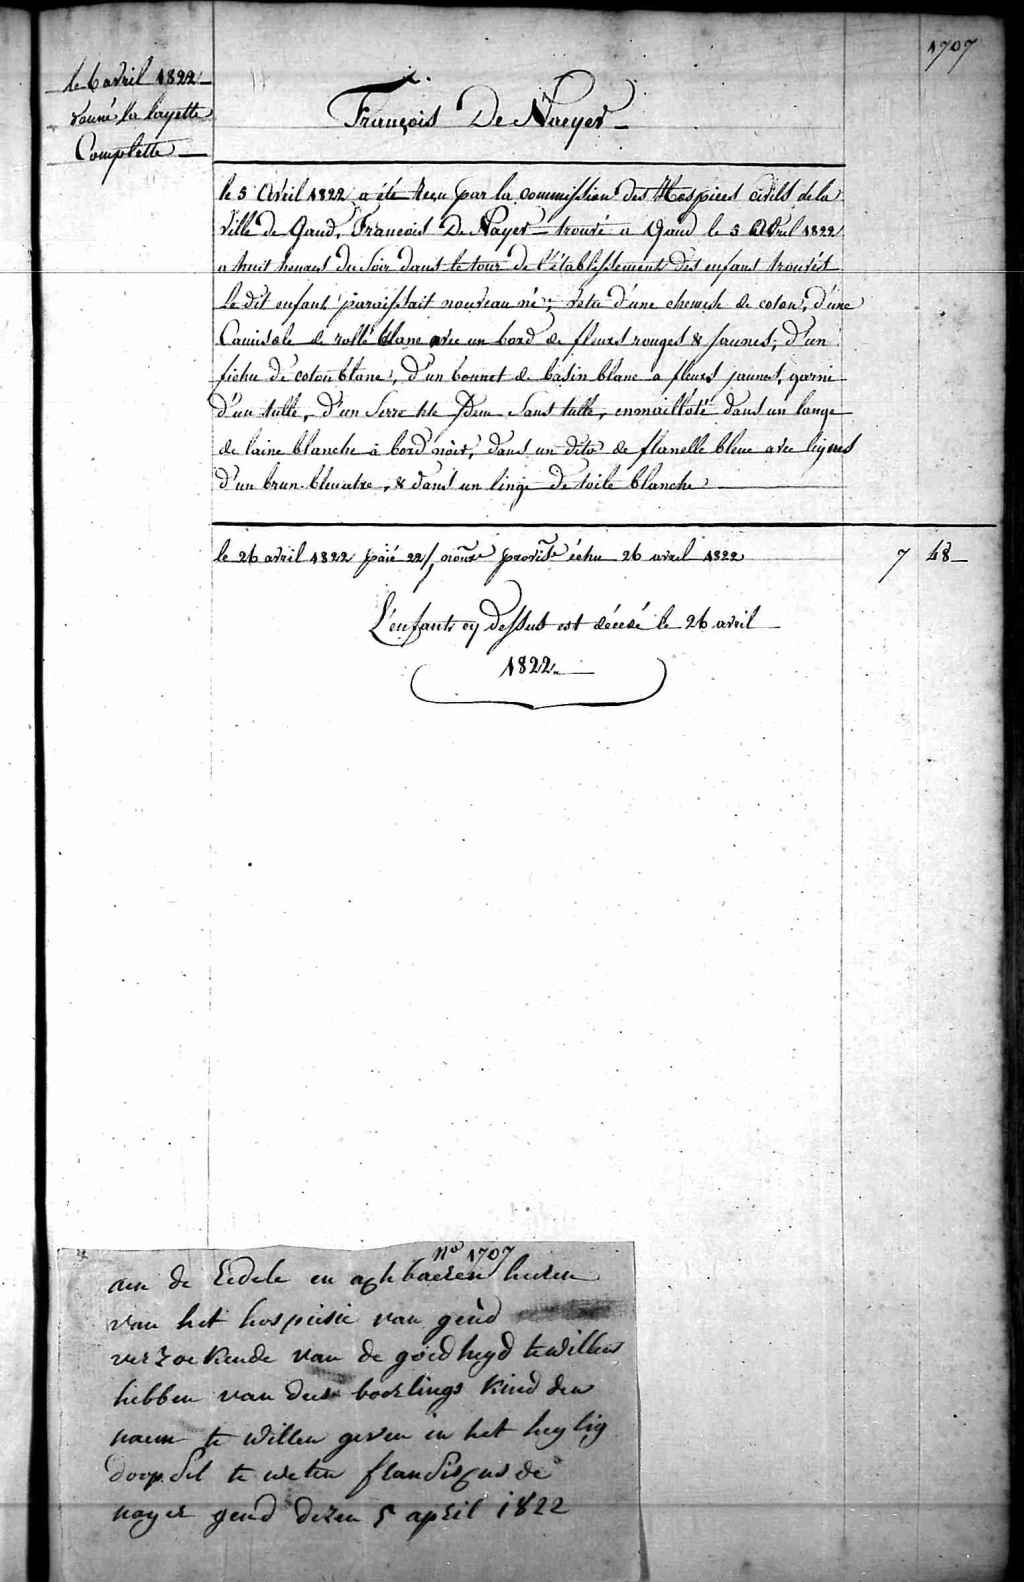 1707
le 6 avril 1822
donné la layette
Complette
François De Naeyer
le 5 Avril 1822 a été reçu par la commission des Hospices civils de la
Ville de Gand, François De Nayer trouvé a Gand le 5 Avril 1822
a huit heures du Soir dans le tour de l'établissement des enfans trouvés
Le dit enfant paroissait nouveau né; vetu d'une chemise de coton, d'une
Camisole de toille blanc avec un bord de fleurs rouges & jaunes, d'un
fichu de coton blanc, d'un bonnet de basin blanc a fleurs jaunes, garni
d'un tulle, d'un Serre tete Idem Sans tulle, enmailloté dans un lange
de laine blanche à bord noir, dans un dito de flanelle bleue avec lignes
d'un brun bleuatre, & dans un linge de toile blanche
le 26 avril 1822 paié 22/j nourre provisre échu 26 avril 1822 7 48
L'enfant cy dessus est décédé le 26 avril
1822
No 1707
aen de Eedele en aghbaeren heeren
van het hospisie van gend
verzoekende van de goedheyd te willen
hebben van dees boorlings kind den
naem te willen geven in het heylig
doopsel te weten fransiscus de
nayer gend dezen 5 april 1822